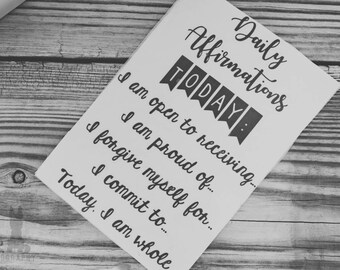 Daily
Affirmations
TODAY:
I am open to receiving...
I am proud of...
I forgive myself for...
I commit to...
Today. I am whole